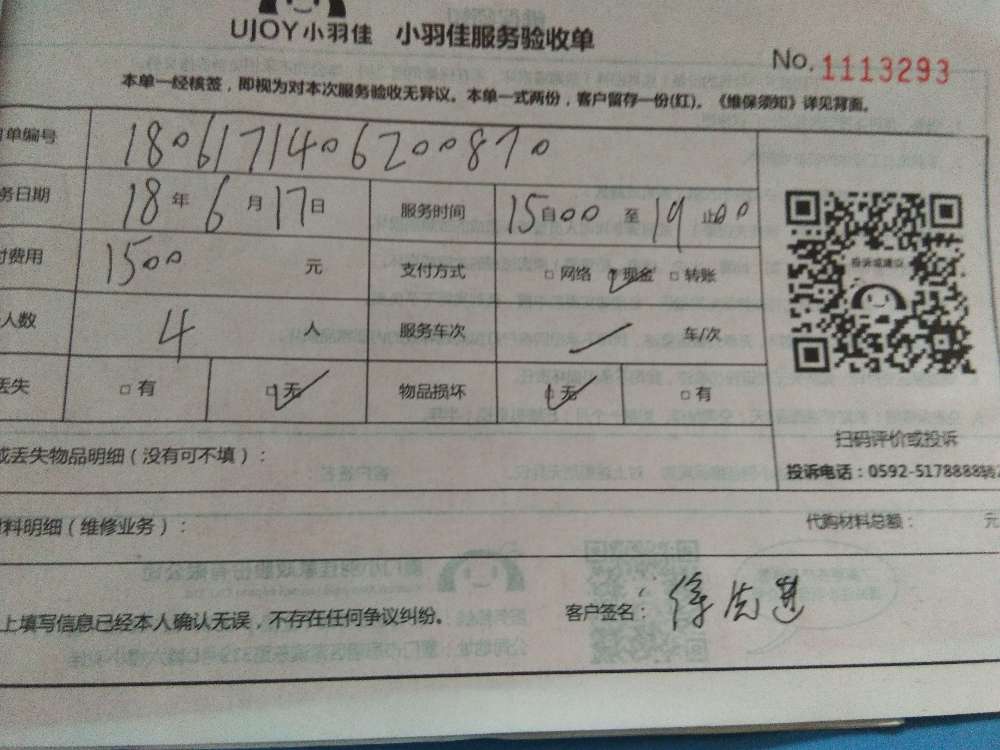 UJOY小羽佳 小羽佳服务验收单
No. 1113293
本单一经核签，即视为对本次服务验收无异议。本单一式两份，客户留存一份(红)。《维保须知》详见背面。
单编号 1806171406200870
务日期 18 年 6 月 17 日 服务时间 15 自 00 至 19 止 00
付费用 1500 元 支付方式 □ 网络 ☑ 现金 □ 转账
人数 4 人 服务车次 车/次
丢失 □ 有 ☑ 无 物品损坏 ☑ 无 □ 有
投诉或建议
扫码评价或投诉
投诉电话：0592-5178888转2
或丢失物品明细（没有可不填）：
材料明细（维修业务）： 代购材料总额： 元
上填写信息已经本人确认无误，不存在任何争议纠纷。 客户签名：徐先